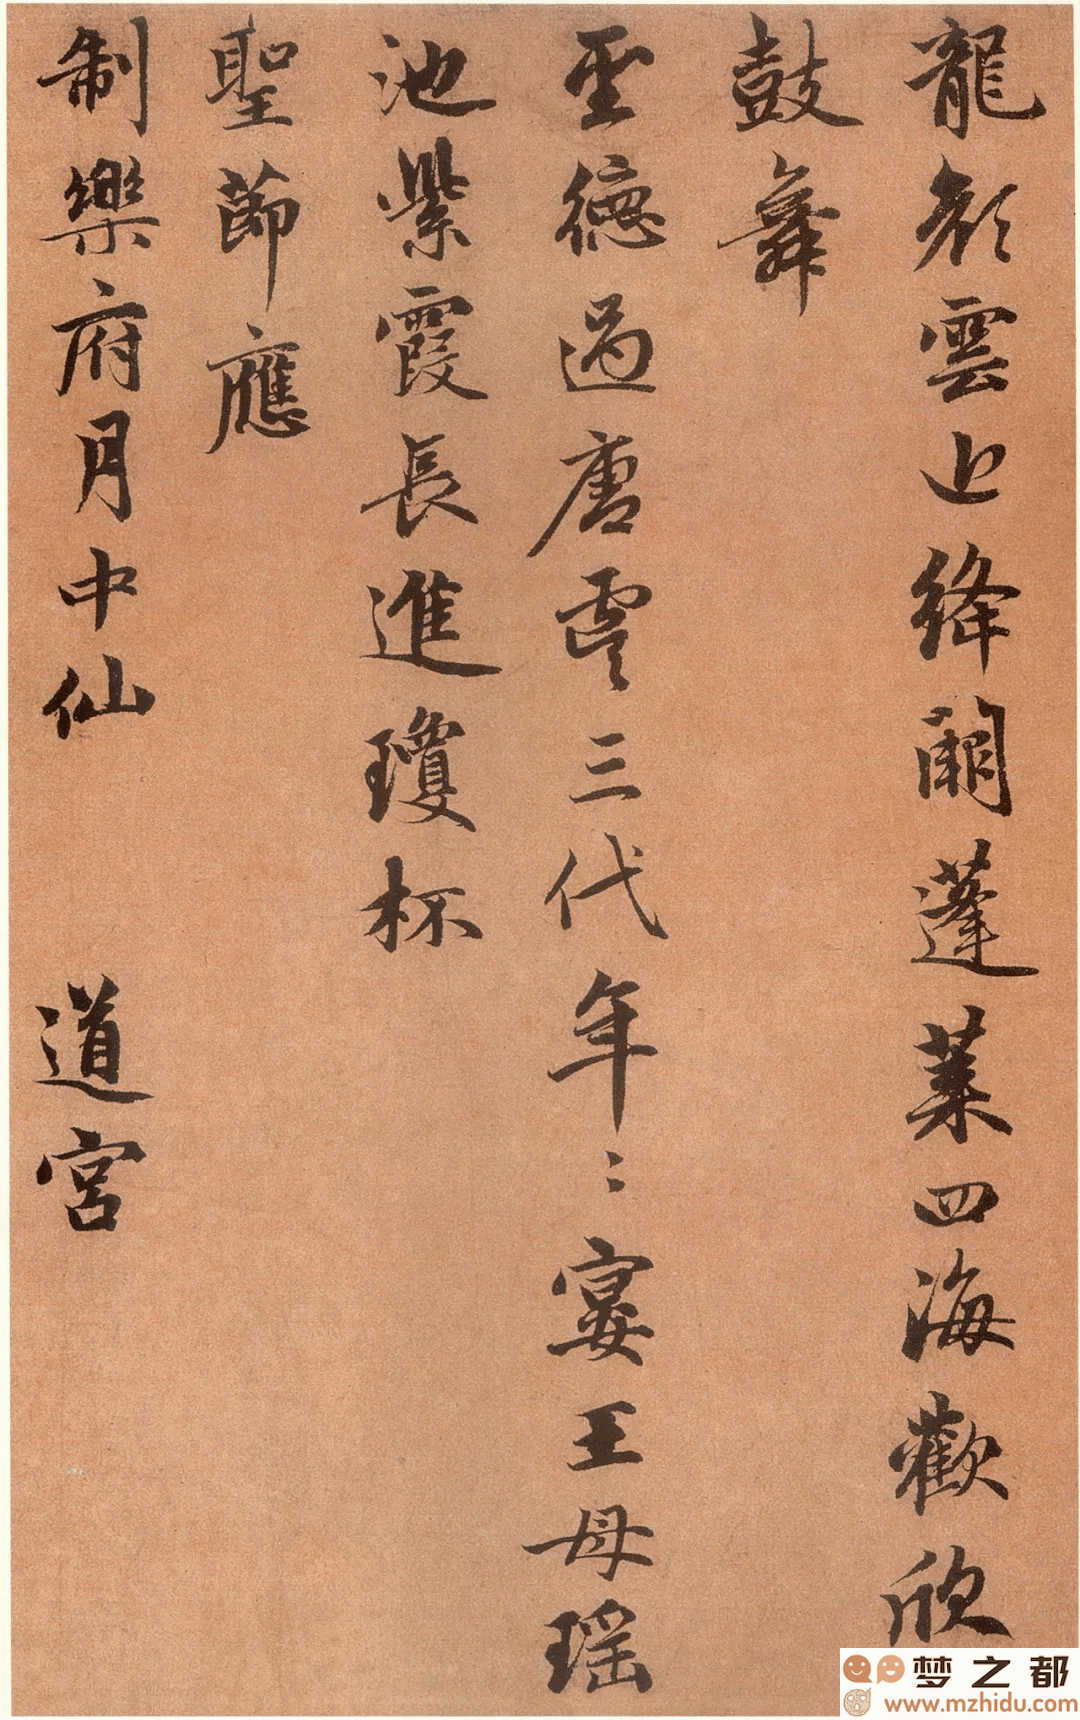 龍顔雲上絳闕蓬萊四海歡欣
鼓舞
聖德過唐虞三代年〻宴王母瑶
池紫霞長進瓊杯
聖節應
制樂府月中仙 道宮
梦之都
www.mzhidu.com